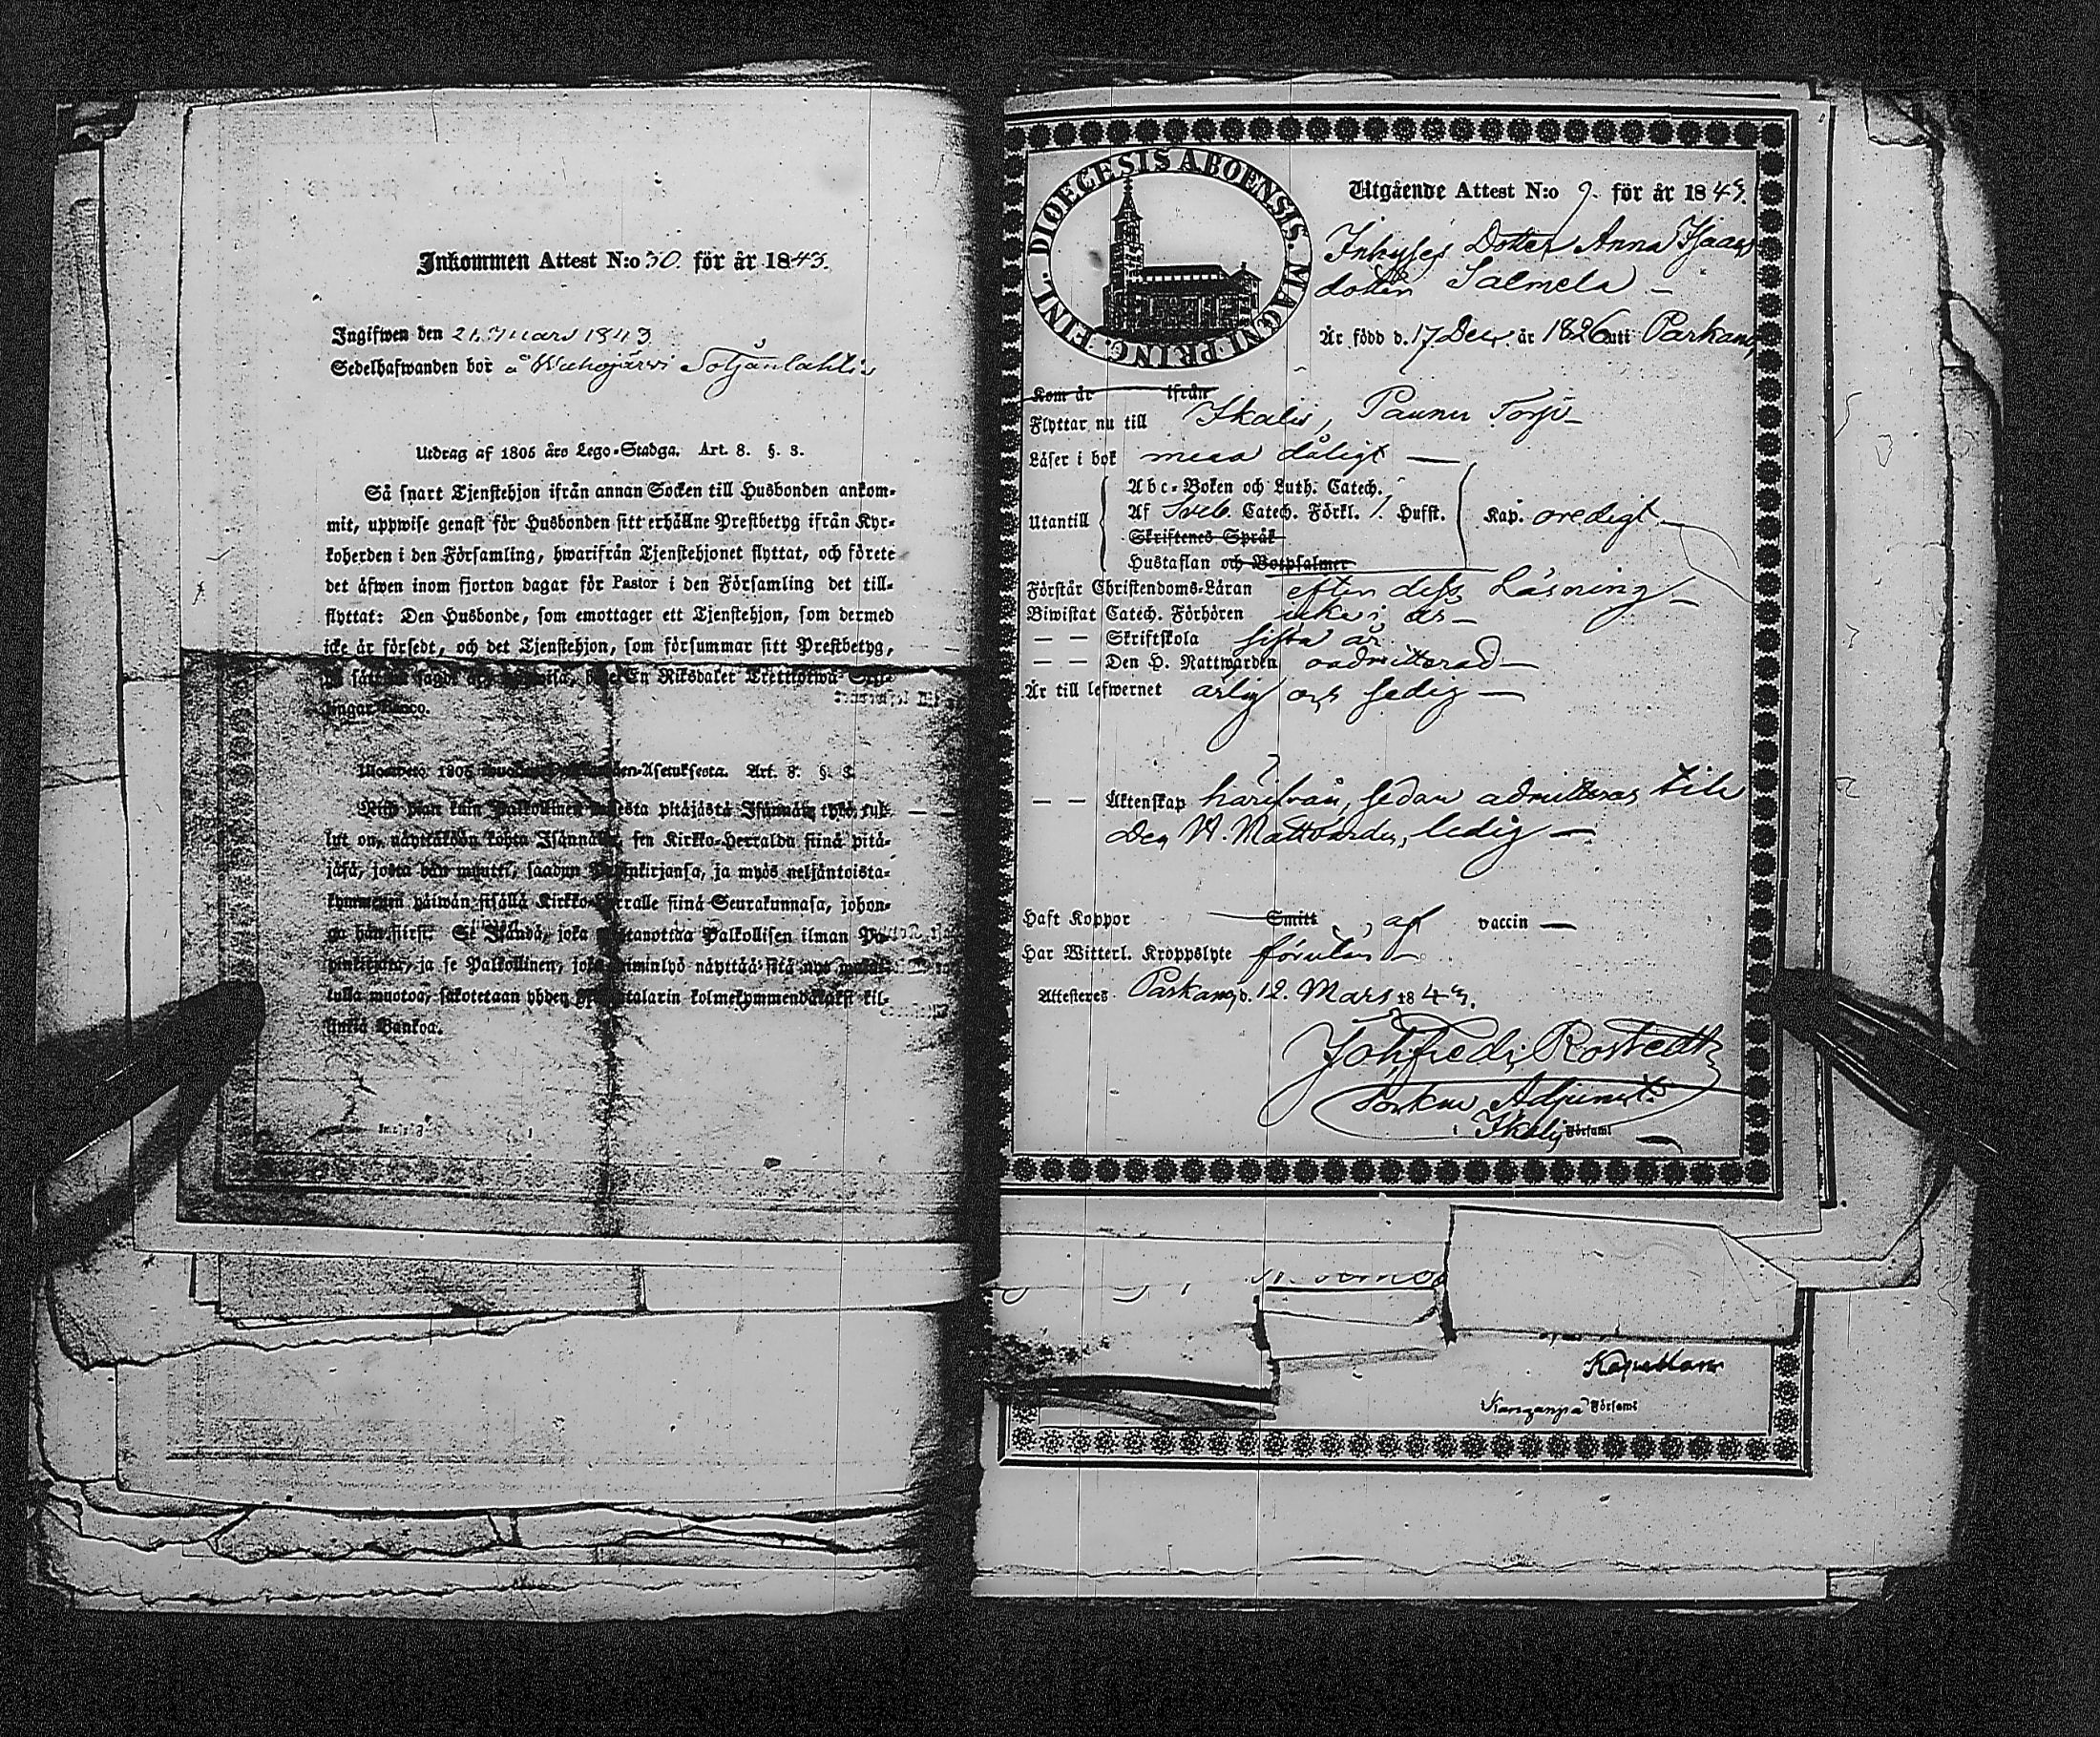 Inkommen Attest N:o 30. för år 1843.
Ingifwen den 21. Mars 1843
Sedelhafwanden bor å Wuhojärvi Sotjänlahti
Utdrag af 1805 års Lego-Stadga. Art. 8. §. 3.
Så snart Tjenstehjon ifrån annan Socken till Husbonden ankom-
mit, uppwise genast för Husbonden sitt erhållne Prestbetyg ifrån Kyr-
koherden i den Församling, hwarifrån Tjenstehjonet flyttat, och förete
det äfwen inom fjorton dagar för Pastor i den Församling det till-
flyttat: Den Husbonde, som emottager ett Tjenstehjon, som dermed
icke är försedt, och det Tjenstehjon, som försummar sitt Prestbetyg,
En Riksdaler Trettiotwå
Banco.
1805 Asetuksesta. Art. 8. §. 3.
kuin Palkollinen pitäjästä Isännän tygö tul-
lut on, näyttäköön kohta Isännälle sen Kirkko-Herralda siinä pitä-
jäsä, josta hän muutti, saadun kirjansa, ja myös neljäntoista-
kymmenen päiwän sisällä Kirkko-Herralle siinä Seurakunnasa, johon-
ga hän siirsi: Se Isändä, joka wastanottaa Palkollisen ilman Pa-
pinkirjata, ja se Palkollinen, joka laiminlyö näyttää sitä
tulla muotoa, sakotetaan yhden talarin kolmekymmendäkaksi kil-
lingiä Bankoa.
DIOECESIS ABOENSIS. MAGNI PRINC. FINL.
Utgående Attest N:o 9. för år 1843.
Inhyses Dotter Anna Isaaks
dotter Salmela –
Är född d. 17. Dec. år 1826 uti Parkano
Kom år ifrån
Flyttar nu till Ikalis, Paunu Torp –
Läser i bok dåligt —
Utantill
Abc-Boken och Luth. Catech.
Af Sveb. Catech. Förkl. 1. Hufst. Kap. oredigt —
Skriftenes Språk
Hustaflan och Botpsalmer
Förstår Christendoms-Läran efter dess Läsning –
Biwistat Catech. Förhören icke i år –
— — Skriftskola sista år
— — Den H. Nattwarden oadmitterad —
Är till lefwernet ärlig och sedig —
— — Äktenskap härifrån, sedan admitteras till
Den H. Nattvarden, ledig —
Haft Koppor Smitt, af vaccin —
Har Witterl. Kroppslyte förutan –
Attesteres Parkano d. 12. Mars 1843.
Joh. Fredr. Rostedt
Sockne Adjunct
i Ikalis Församl
Kapellan
Kangasnpä Församl